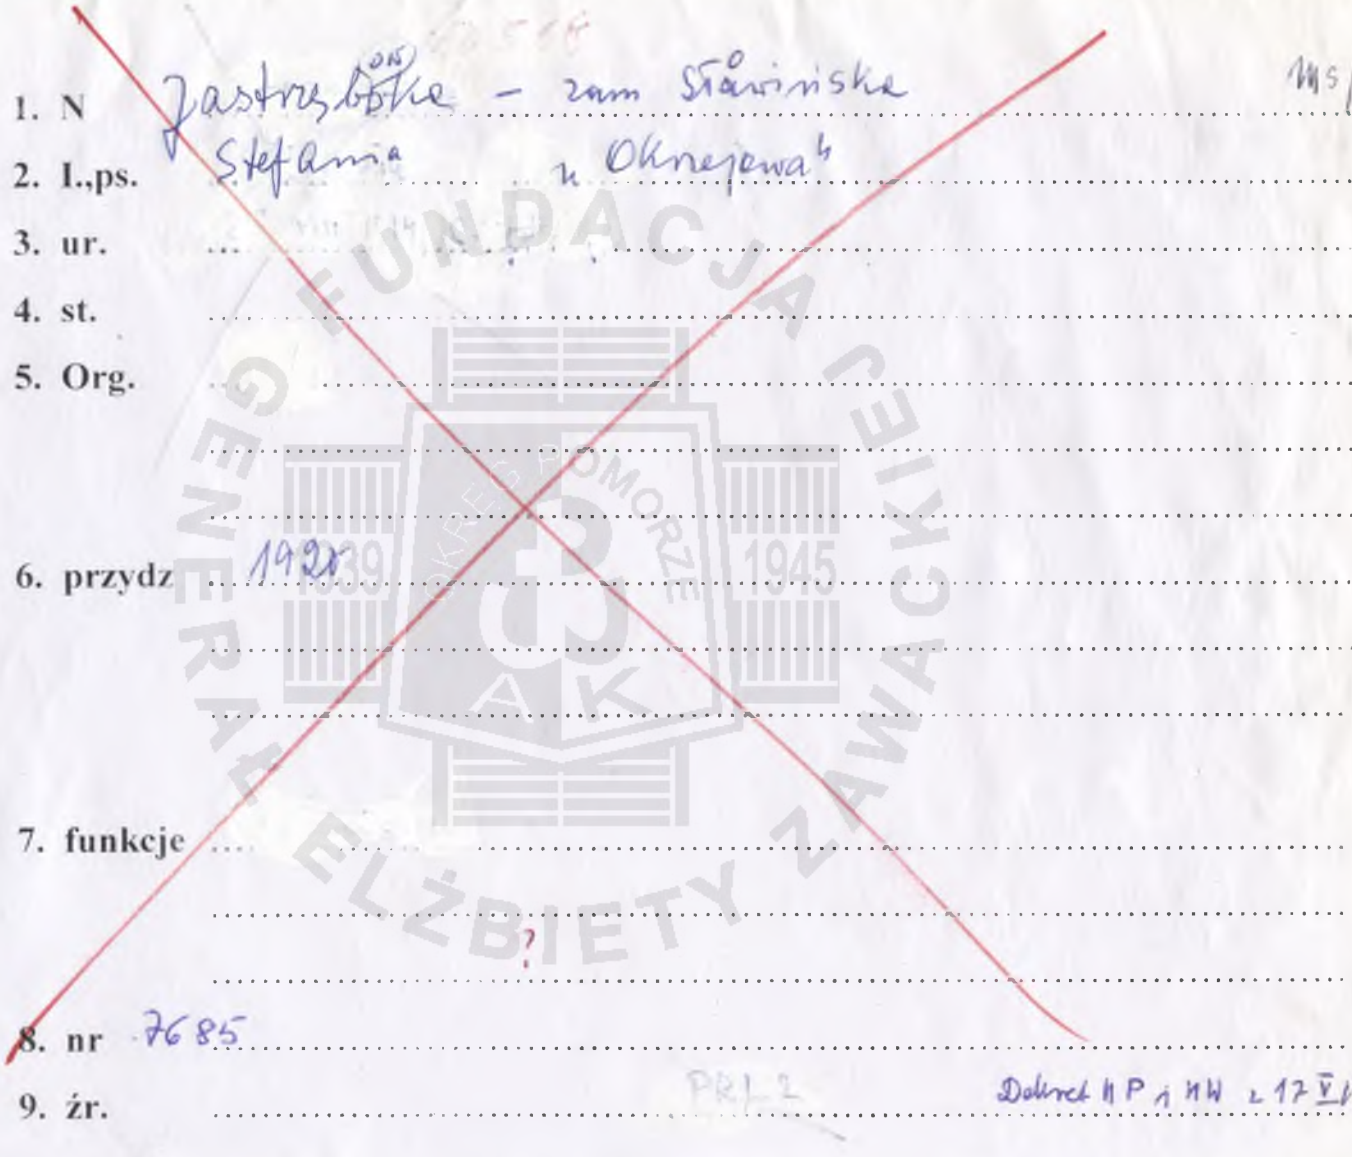 1. N Jastrzębska – zam Sławińska
2. I.,ps. Stefania "Okrzejowa"
3. ur.
4. st.
5. Org.
6. przydz 1920
7. funkcje
?
8. nr 7685
9. źr. PRL 2 Dekret NP i NW z 17 V
FUNDACJA GENERAŁ ELŻBIETY ZAWACKIEJ
OKRĘG POMORZE
1939 1945
AK